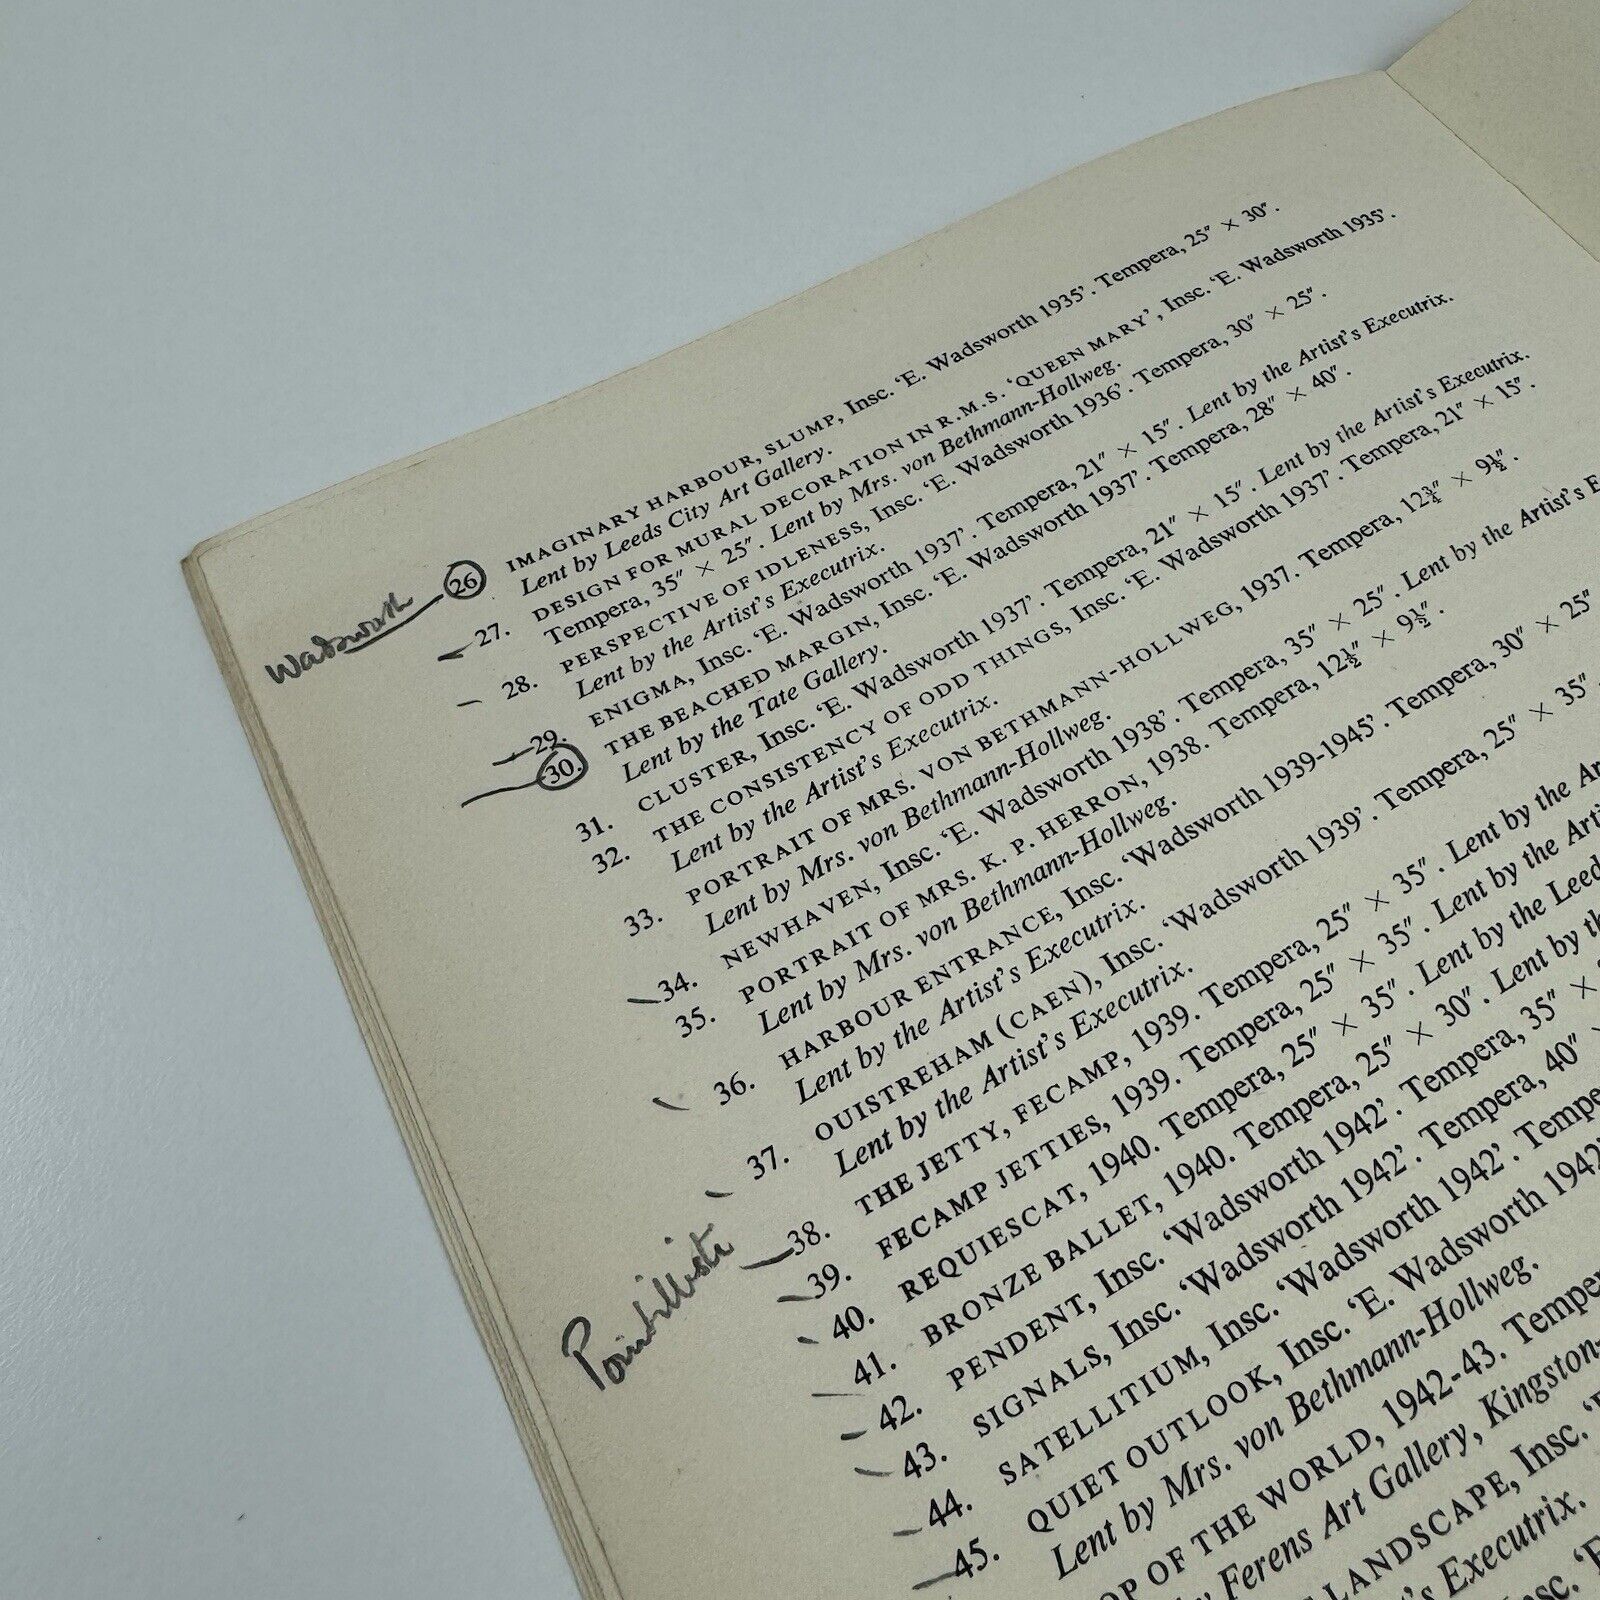 Wadsworth
26 IMAGINARY HARBOUR, SLUMP, Insc. ‘E. Wadsworth 1935’. Tempera, 25″ × 30″.
Lent by Leeds City Art Gallery.
27. DESIGN FOR MURAL DECORATION IN R.M.S. ‘QUEEN MARY’, Insc. ‘E. Wadsworth 1935’.
Tempera, 35″ × 25″. Lent by Mrs. von Bethmann-Hollweg.
28. PERSPECTIVE OF IDLENESS, Insc. ‘E. Wadsworth 1936’. Tempera, 30″ × 25″.
Lent by the Artist’s Executrix.
29. ENIGMA, Insc. ‘E. Wadsworth 1937’. Tempera, 21″ × 15″. Lent by the Artist’s Executrix.
30 THE BEACHED MARGIN, Insc. ‘E. Wadsworth 1937’. Tempera, 28″ × 40″.
Lent by the Tate Gallery.
31. CLUSTER, Insc. ‘E. Wadsworth 1937’. Tempera, 21″ × 15″. Lent by the Artist’s Executrix.
32. THE CONSISTENCY OF ODD THINGS, Insc. ‘E. Wadsworth 1937’. Tempera, 21″ × 15″.
Lent by the Artist’s Executrix.
33. PORTRAIT OF MRS. VON BETHMANN-HOLLWEG, 1937. Tempera, 12¾″ × 9½″.
Lent by Mrs. von Bethmann-Hollweg.
34. NEWHAVEN, Insc. ‘E. Wadsworth 1938’. Tempera, 35″ × 25″. Lent by the Artist’s E
35. PORTRAIT OF MRS. K. P. HERRON, 1938. Tempera, 12½″ × 9½″.
Lent by Mrs. von Bethmann-Hollweg.
36. HARBOUR ENTRANCE, Insc. ‘Wadsworth 1939-1945’. Tempera, 30″ × 25″
Lent by the Artist’s Executrix.
37. OUISTREHAM (CAEN), Insc. ‘Wadsworth 1939’. Tempera, 25″ × 35″.
Lent by the Artist’s Executrix.
Pointilliste
38. THE JETTY, FECAMP, 1939. Tempera, 25″ × 35″. Lent by the Ar
39. FECAMP JETTIES, 1939. Tempera, 25″ × 35″. Lent by the Art
40. REQUIESCAT, 1940. Tempera, 25″ × 35″. Lent by the Leed
41. BRONZE BALLET, 1940. Tempera, 25″ × 30″. Lent by th
42. PENDENT, Insc. ‘Wadsworth 1942’. Tempera, 35″ ×
43. SIGNALS, Insc. ‘Wadsworth 1942’. Tempera, 40″
44. SATELLITIUM, Insc. ‘Wadsworth 1942’. Tempe
45. QUIET OUTLOOK, Insc. ‘E. Wadsworth 1942’
Lent by Mrs. von Bethmann-Hollweg.
OP OF THE WORLD, 1942-43. Temper
Ferens Art Gallery, Kingston-
LANDSCAPE, Insc.
’s Executrix.